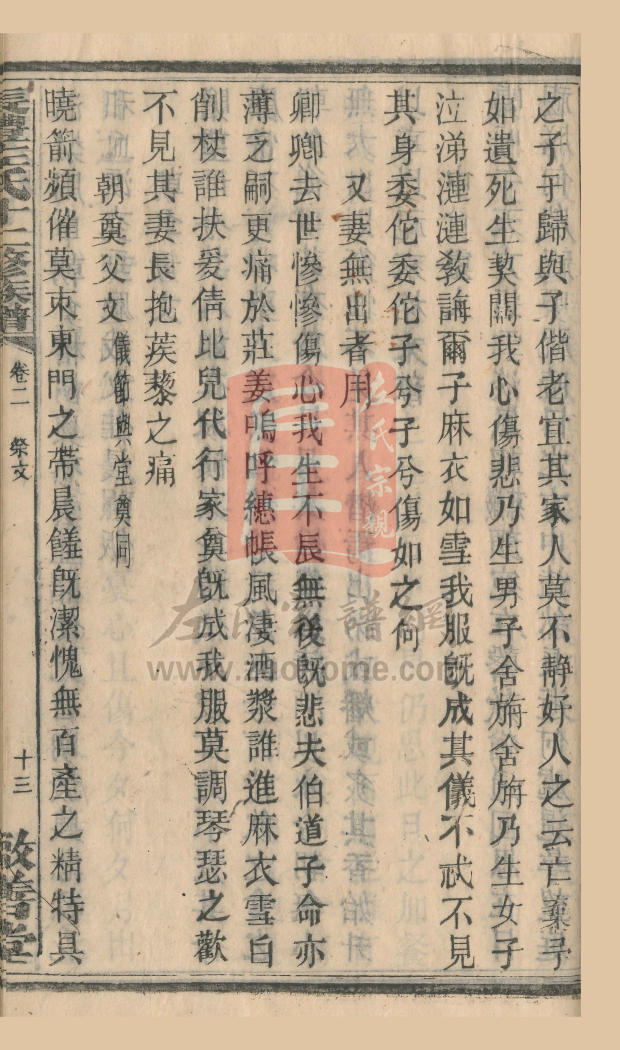 之子于歸與子偕老宜其家人莫不靜好人之云亡棄予
如遺死生契闊我心傷悲乃生男子舍旃舍旃乃生女子
泣涕漣漣教誨爾子麻衣如雪我服旣成其儀不忒不見
其身委佗委佗子兮子兮傷如之何
又妻無出者用
卿卿去世慘慘傷心我生不辰無後旣悲夫伯道子命亦
薄乏嗣更痛於莊姜嗚呼繐帳風淒酒漿誰進麻衣雪白
削杖誰扶爰倩比兒代行家奠旣成我服莫調琴瑟之歡
不見其妻長抱蒺藜之痛
朝奠父文 儀節與堂奠同
曉箭頻催莫束東門之帶晨饈旣潔愧無百產之精特具
氏十二修族譜 卷二 祭文 十三 敬善堂
丘氏宗親
www.zuotome.com